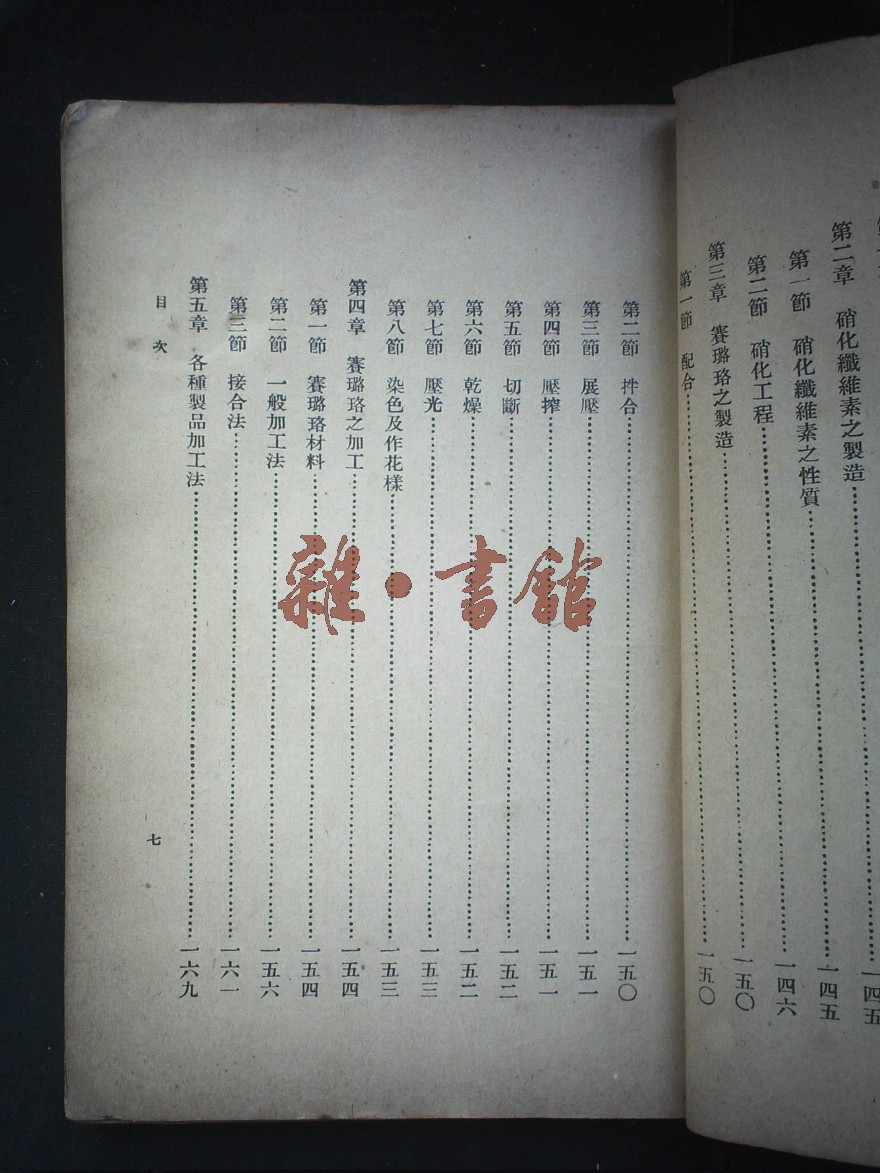 第二章　硝化纖維素之製造……一四五
第一節　硝化纖維素之性質……一四五
第二節　硝化工程……一四六
第三章　賽璐珞之製造……一五〇
第一節　配合……一五〇
第二節　拌合……一五〇
第三節　展壓……一五一
第四節　壓搾……一五一
第五節　切斷……一五二
第六節　乾燥……一五二
第七節　壓光……一五三
第八節　染色及作花樣……一五三
第四章　賽璐珞之加工……一五四
第一節　賽璐珞材料……一五四
第二節　一般加工法……一五六
第三節　接合法……一六一
第五章　各種製品加工法……一六九
目次　七
雜·書館